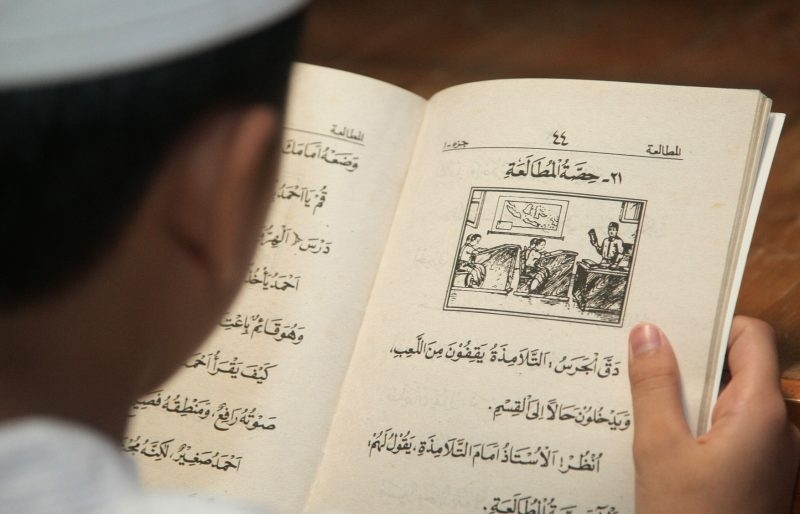 المطالعة ٤٤ جزء-١
٢١- حِصَّةُ الْمُطَالَعَةِ
دَقَّ الْجَرَسُ: اَلتَّلَامِذَةُ يَقِفُوْنَ مِنَ اللَّعِبِ،
وَيَدْخُلُوْنَ حَالًا اِلَى الْقِسْمِ.
اُنْظُرْ! اَلْاُسْتَاذُ اَمَامَ التَّلَامِذَةِ، يَقُوْلُ لَهُمْ:
الْمُطَالَعَةِ.
المطالعة
وَضَعْهُ اَمَامَكَ
قُمْ يَا اَحْمَدُ
دَرْسَ
اَحْمَدُ
وَهُوَ قَائِمٌ
كَيْفَ يَقْرَأُ
صَوْتُهُ رَافِعٌ، وَمَنْطِقُهُ
اَحْمَدُ صَغِيْرٌ، لٰكِنَّهُ